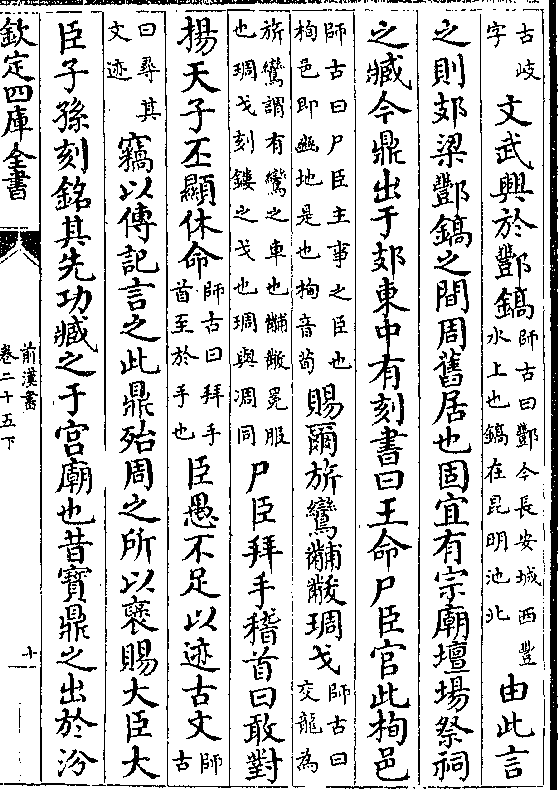 古岐字文武興於酆鎬師古曰酆今長安城西豐水上也鎬在昆明池北由此言
之則郊梁酆鎬之間周舊居也固宜有宗廟壇場祭祠
之臧今鼎出于郊東中有刻書曰王命尸臣官此栒邑
師古曰尸臣主事之臣也栒邑即豳地是也栒音荀賜爾旂鸞黼黻琱戈師古曰交龍為
旂鸞謂有鸞之車也黼黻冕服也琱戈刻鏤之戈也琱與凋同尸臣拜手稽首曰敢對
揚天子丕顯休命師古曰拜手首至於手也臣愚不足以迹古文師古
曰尋其文迹竊以傳記言之此鼎殆周之所以褒賜大臣大
臣子孫刻銘其先功臧之于宫廟也昔寶鼎之出於汾
欽定四庫全書
前漢書
卷二十五下
十